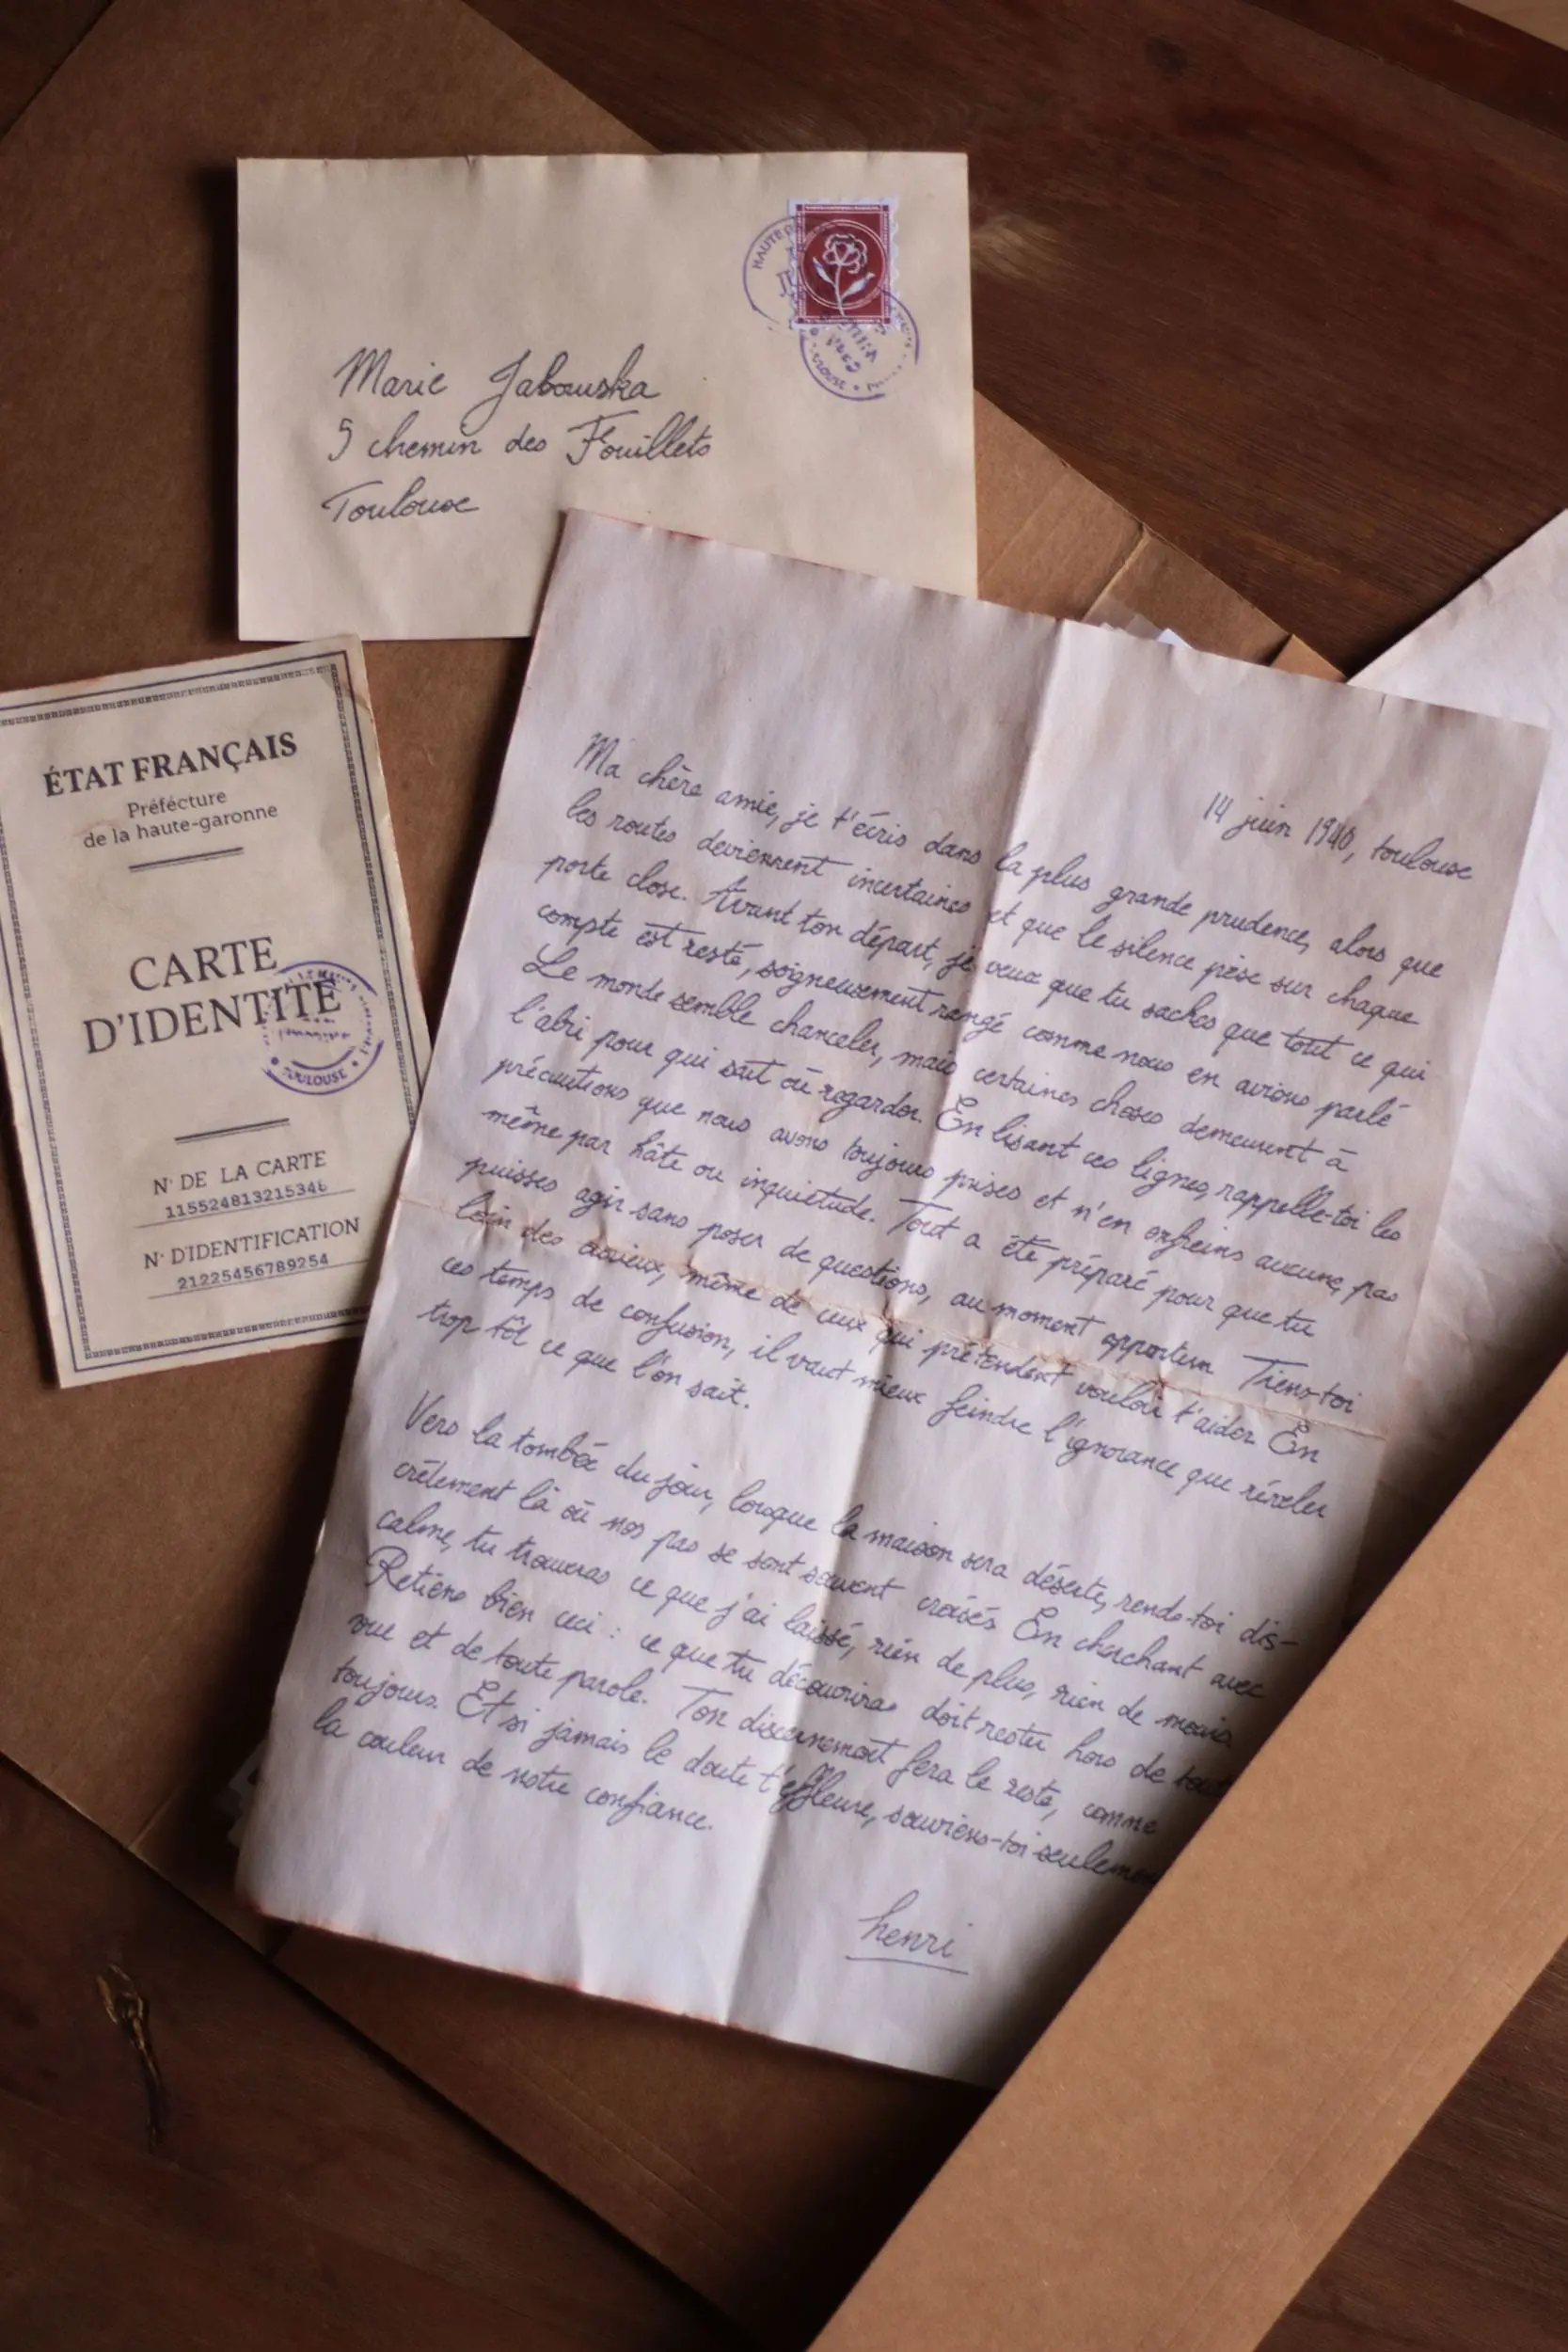 HAUTE
TOULOUSE
Marie Jabouska
5 chemin des Fouillets
Toulouse
ÉTAT FRANÇAIS
Préfécture
de la haute-garonne
CARTE
D'IDENTITÉ
TOULOUSE
N° DE LA CARTE
115524813215346
N° D'IDENTIFICATION
21225456789254
14 juin 1940, toulouse
Ma chère amie, je t'écris dans la plus grande prudence, alors que
les routes deviennent incertaines et que le silence pèse sur chaque
porte close. Avant ton départ, je veux que tu saches que tout ce qui
compte est resté, soigneusement rangé comme nous en avions parlé
Le monde semble chanceler, mais certaines choses demeurent à
l'abri pour qui sait où regarder. En lisant ces lignes, rappelle-toi les
précautions que nous avons toujours prises et n'en enfreins aucune, pas
même par hâte ou inquiétude. Tout a été préparé pour que tu
puisses agir sans poser de questions, au moment opportun Tiens-toi
loin des curieux, même de ceux qui prétendent vouloir t'aider En
ces temps de confusion, il vaut mieux feindre l'ignorance que révéler
trop tôt ce que l'on sait.
Vers la tombée du jour, lorsque la maison sera déserte, rends-toi dis-
crètement là où nos pas se sont souvent croisés En cherchant avec
calme, tu trouveras ce que j'ai laissé, rien de plus, rien de moins.
Retiens bien ceci : ce que tu découvriras doit rester hors de
vue et de toute parole. Ton discernement fera le reste, comme
toujours. Et si jamais le doute t'effleure, souviens-toi
la couleur de notre confiance.
henri